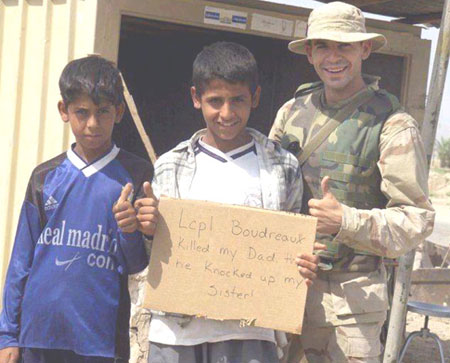 Lcpl Boudreaux
Killed my Dad, th
he Knocked up my
Sister!
adidas
Real madrid
.com